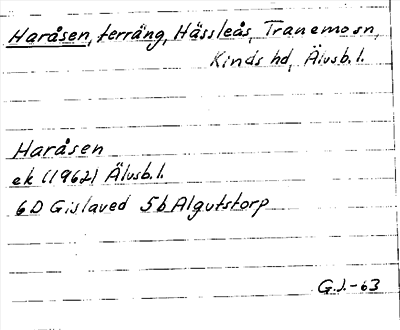 Haråsen, terräng, Hässleås, Tranemo sn,
Kinds hd, Älvsb. l.
Haråsen
ek (1962) Älvsb. l.
6D Gislaved 5b Algutstorp
G.J.-63